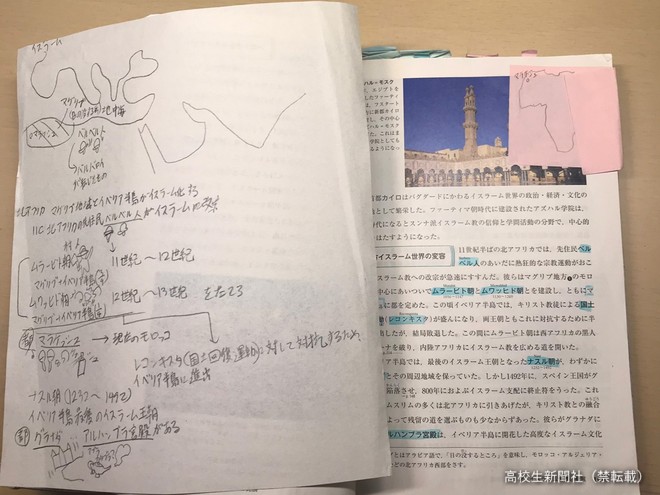 イスラーム
マグリブ
地中海
ベルベル
北アフリカ マグリブ地域とイベリア半島がイスラーム化する
11C 北アフリカの先住民ベルベル人がイスラームに改宗
ムラービト朝
11世紀〜12世紀
マグリブ+イベリア半島(南)
ムワッヒド朝
12世紀〜13世紀 をたてる
マグリブ+イベリア半島(南)
都 マラケシュ → 現在のモロッコ
レコンキスタ(国土回復運動)に対して対抗するため
イベリア半島に進出
ナスル朝(1232〜1492)
イベリア半島最後のイスラーム王朝
都 グラナダ アルハンブラ宮殿がある
ハル=モスク
、エジプトを
したファーティ
、フスタート
に新都カイロ
。その中心
ハル=モスク
。これはま
学院としても
るようになっ
マラケシュ
首都カイロはバグダードにかわるイスラーム世界の政治・経済・文化の
として繁栄した。ファーティマ朝時代に建設されたアズハル学院は、
時代になるとスンナ派イスラーム教の信仰と学問活動の分野で、中心的
はたすようになった。
イスラーム世界の変容
11世紀半ばの北アフリカでは、先住民ベル
ベル人のあいだに熱狂的な宗教運動がおこ
スラーム教への改宗が急速にすすんだ。彼らはマグリブ地方のモロ
中心にあいついでムラービト朝とムワッヒド朝とを建設し、ともにマ
に都を定めた。この頃イベリア半島では、キリスト教徒による国土
(レコンキスタ)が盛んになり、両王朝ともこれに対抗するために半
出したが、結局敗退した。この間にムラービト朝は西アフリカの黒人
ナを破り、内陸アフリカにイスラーム教を広める道を開いた。
半島では、最後のイスラーム王朝となったナスル朝が、わずかに
とその周辺地域を保っていた。しかし1492年に、スペイン王国がグ
陥落させ、800年におよぶイスラーム支配に終止符をうった。これ
ムスリムの多くは北アフリカに引きあげたが、キリスト教との融合
よって残留の道を選ぶものも少なからずあった。彼らがグラナダに
ルハンブラ宮殿は、イベリア半島に開花した高度なイスラーム文化
とはアラビア語で、「日の没するところ」を意味し、モロッコ・アルジェリア・
どの北アフリカ西部をさす。
高校生新聞社(禁転載)